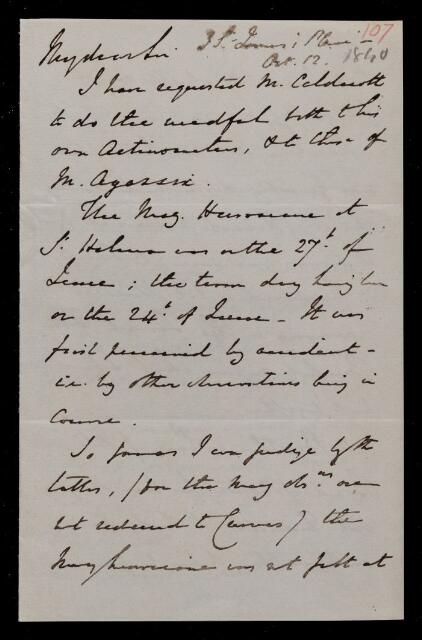 107
3 St. James's Place
Oct. 12. 1840
My dear Sir
I have requested Mr. Caldecott
to do the needful both to his
own Actinometers, & to those of
M. Agassiz.
The Mag. Hurricane at
St. Helena was on the 27th of
June; the term day having been
on the 24th of June – It was
first perceived by accident –
i.e. by other observations being in
course.
So far as I can judge by the
tables, (for the mag obsns are
not reduced to Curves) the
Mag hurricane was not felt at